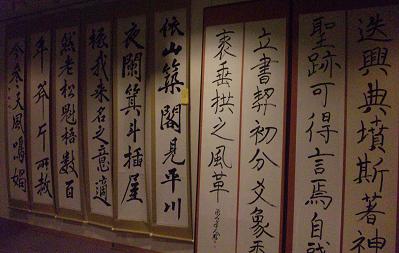 迭興典墳斯著神
聖跡可得言焉自
立書契初分爻象
垂拱之風革
依山築閣見平川
夜闌箕斗插屋
椽我來名之意適
然老松魁梧數百
年斧斤所赦
今參天風鳴媧